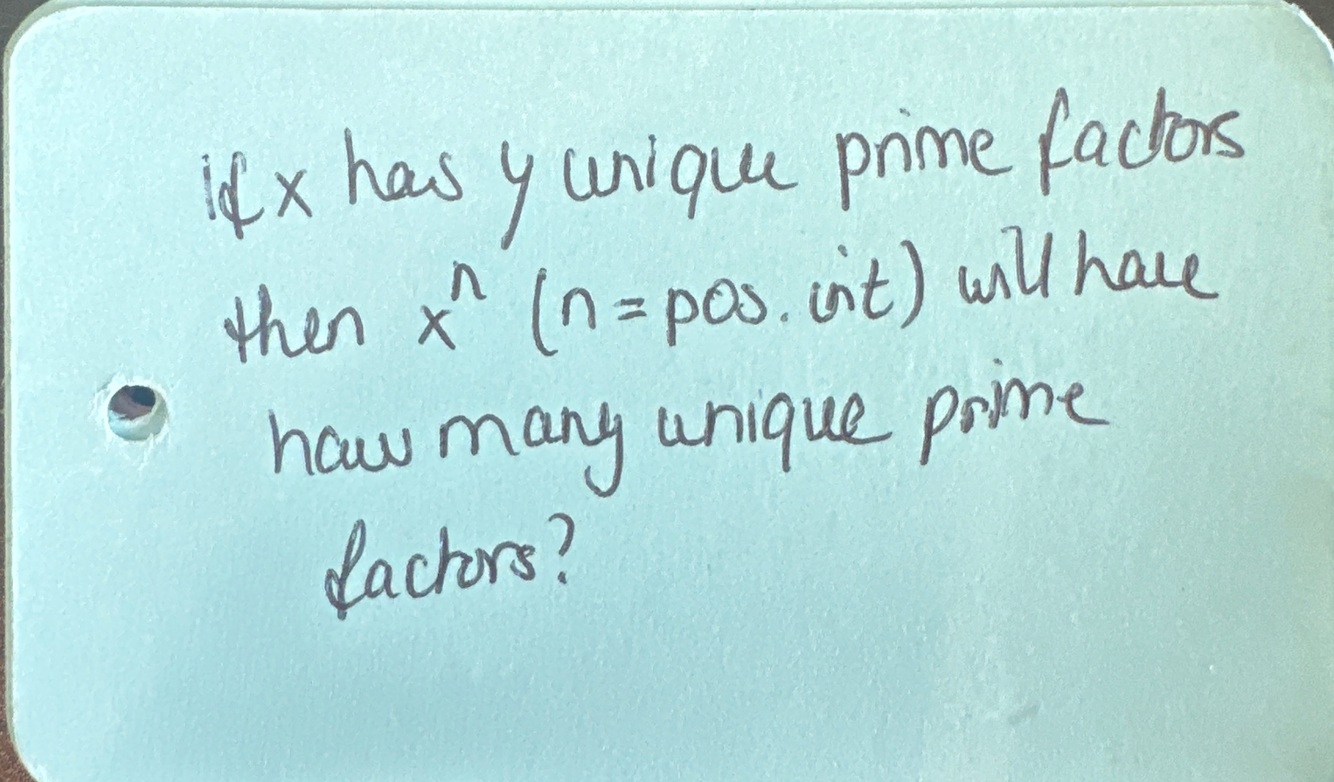 if x has y unique prime factors
then xⁿ (n = pos. int) will have
how many unique prime
factors?